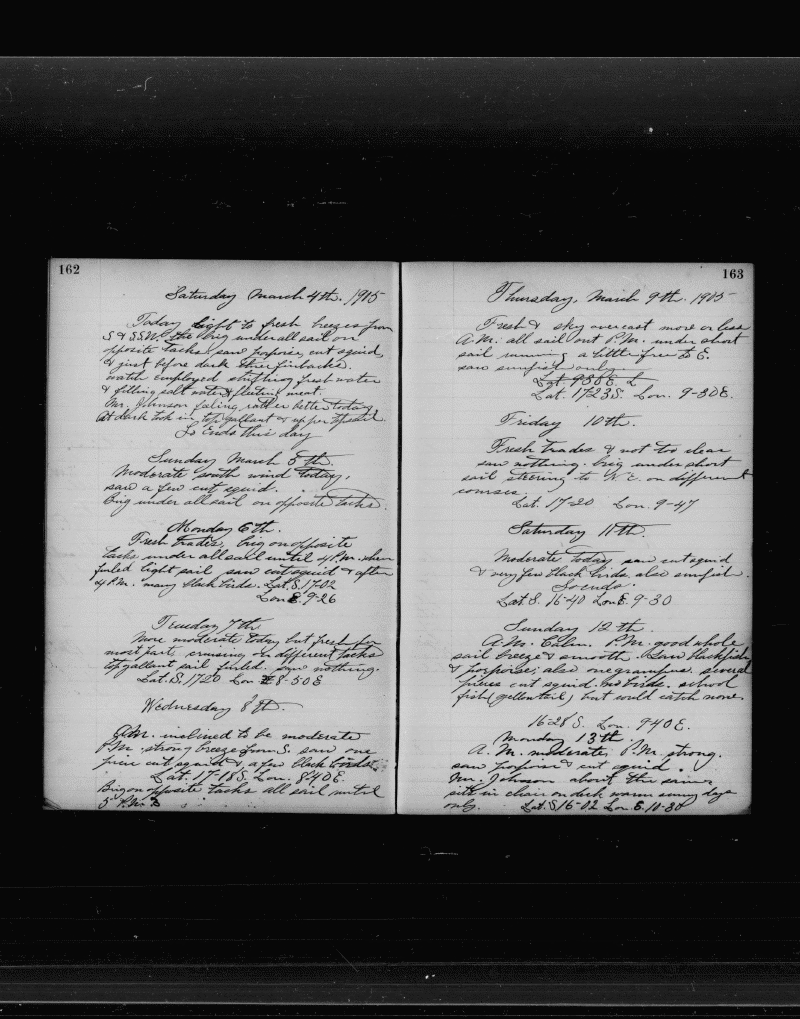 162
Saturday March 4th. 1905
Today light to fresh breezes from
S & S.S.W. the brig under all sail on
opposite tacks. saw porpoise, cut squid,
& just before dark three finbacks.
watch employed stripping fresh water
& filling salt water & meat.
Mr. Johnson eating rather better today
At dark took in top gallant & upper topsail.
So Ends this day
Sunday March 5th.
Moderate south wind today,
saw a few cut squid.
Brig under all sail on opposite tacks.
Monday 6th.
Fresh trades, brig on opposite
tacks under all sail until 4 P.M. when
furled light sail saw cut squid & after
4 P.M. many black birds. Lat. S. 17-02
Lon E. 9-26
Tuesday 7th
More moderate today but fresh for
most part cruising on different tacks
top gallant sail furled. saw nothing.
Lat. S. 17-20 Lon 8-50 E
Wednesday 8th.
A.M. inclined to be moderate
P.M. strong breeze from S. saw one
piece cut squid & a few black birds.
Lat. 17-18 S. Lon. 8-40 E.
Brig on opposite tacks all sail until
5 P.M.
163
Thursday, March 9th. 1905
Fresh & sky overcast more or less
A.M. all sail out P.M. under short
sail running a little free to E.
saw sunfish only
Lat. 17-23 S. Lon. 9-30 E.
Friday 10th.
Fresh trades & not too clear
saw nothing. brig under short
sail steering to on different
courses.
Lat. 17-20 Lon. 9-47
Saturday 11th.
Moderate today saw cut squid
& very few black birds, also sunfish.
So ends.
Lat S. 16-40 Lon E. 9-30
Sunday 12th.
A.M. Calm. P.M. good whole
sail breeze & smooth. Saw blackfish
& porpoise; also one grampus. several
pieces cut squid. no birds. school
fish (yellowtail) but could catch none.
16-28 S. Lon. 9-40 E.
Monday 13th
A.M. moderate, P.M. strong.
saw porpoise & cut squid.
Mr. Johnson about the same
sits in chair on deck warm sunny days
only. Lat. S. 16-02 Lon E. 10-30